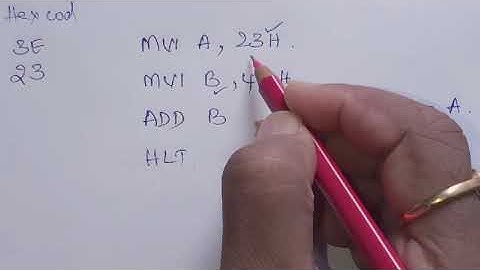 Hex cod
3E MVI A, 23H.
23 MVI B, 4 H
ADD B A.
HLT